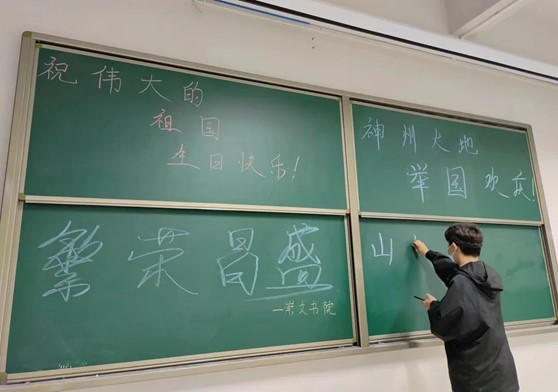 祝伟大的
祖国
生日快乐!
繁荣昌盛
—崇文书院
神州大地
举国欢庆!
山